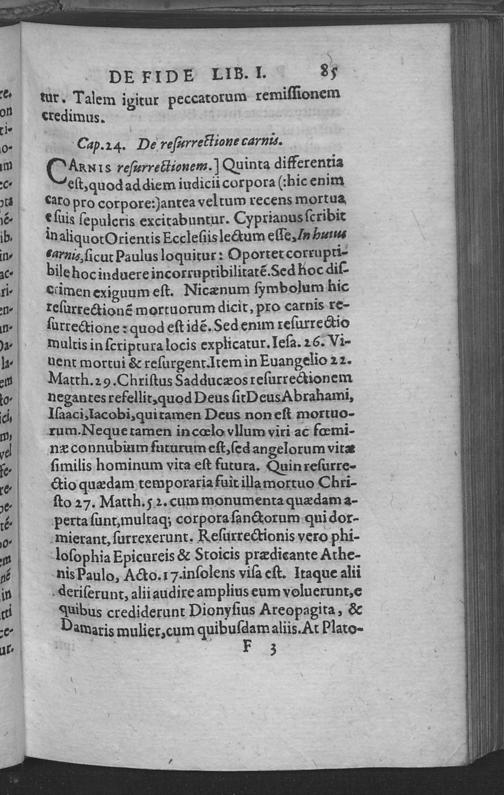 DE FIDE LIB. I. 85
tur. Talem igitur peccatorum remiſſionem
credimus.
Cap.24. De reſurrectione carnis.
CARNIS reſurrectionem.] Quinta differentia
eſt, quod ad diem iudicii corpora (:hic enim
caro pro corpore:) antea vel tum recens mortua
e ſuis ſepulcris excitabuntur. Cyprianus ſcribit
in aliquot Orientis Eccleſiis lectum eſſe, In huius
carnis, ſicut Paulus loquitur: Oportet corrupti-
bile hoc induere incorruptibilitatē. Sed hoc diſ-
crimen exiguum eſt. Nicænum ſymbolum hic
reſurrectionē mortuorum dicit, pro carnis re-
ſurrectione: quod eſt idē. Sed enim reſurrectio
multis in ſcriptura locis explicatur. Ieſa. 26. Vi-
uent mortui & reſurgent. Item in Euangelio 22.
Matth. 29. Chriſtus Sadducæos reſurrectionem
negantes refellit, quod Deus ſit Deus Abrahami,
Iſaaci, Iacobi, qui tamen Deus non eſt mortuo-
rum. Neque tamen in cœlo vllum viri ac fœmi-
næ connubium futurum eſt, ſed angelorum vitæ
ſimilis hominum vita eſt futura. Quin reſurre-
ctio quædam temporaria fuit illa mortuo Chri-
ſto 27. Matth. 52. cum monumenta quædam a-
perta ſunt, multaq; corpora ſanctorum qui dor-
mierant, ſurrexerunt. Reſurrectionis vero phi-
loſophia Epicureis & Stoicis prædicante Athe-
nis Paulo, Acto. 17. inſolens viſa eſt. Itaque alii
deriſerunt, alii audire amplius eum voluerunt, e
quibus crediderunt Dionyſius Areopagita, &
Damaris mulier, cum quibuſdam aliis. At Plato-
F 3